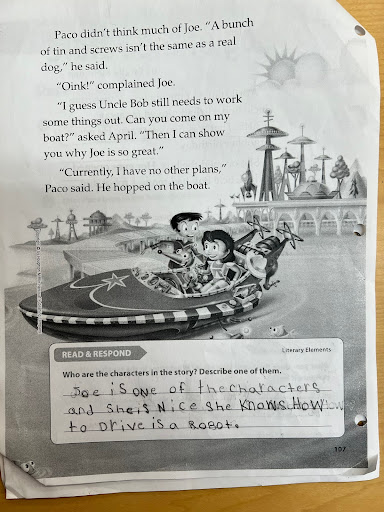 Paco didn't think much of Joe. "A bunch
of tin and screws isn't the same as a real
dog," he said.
"Oink!" complained Joe.
"I guess Uncle Bob still needs to work
some things out. Can you come on my
boat?" asked April. "Then I can show
you why Joe is so great."
"Currently, I have no other plans,"
Paco said. He hopped on the boat.
READ & RESPOND
Literary Elements
Who are the characters in the story? Describe one of them.
Joe is one of the characters
and She is Nice she Knows How
to Drive is a ROBOT.
107